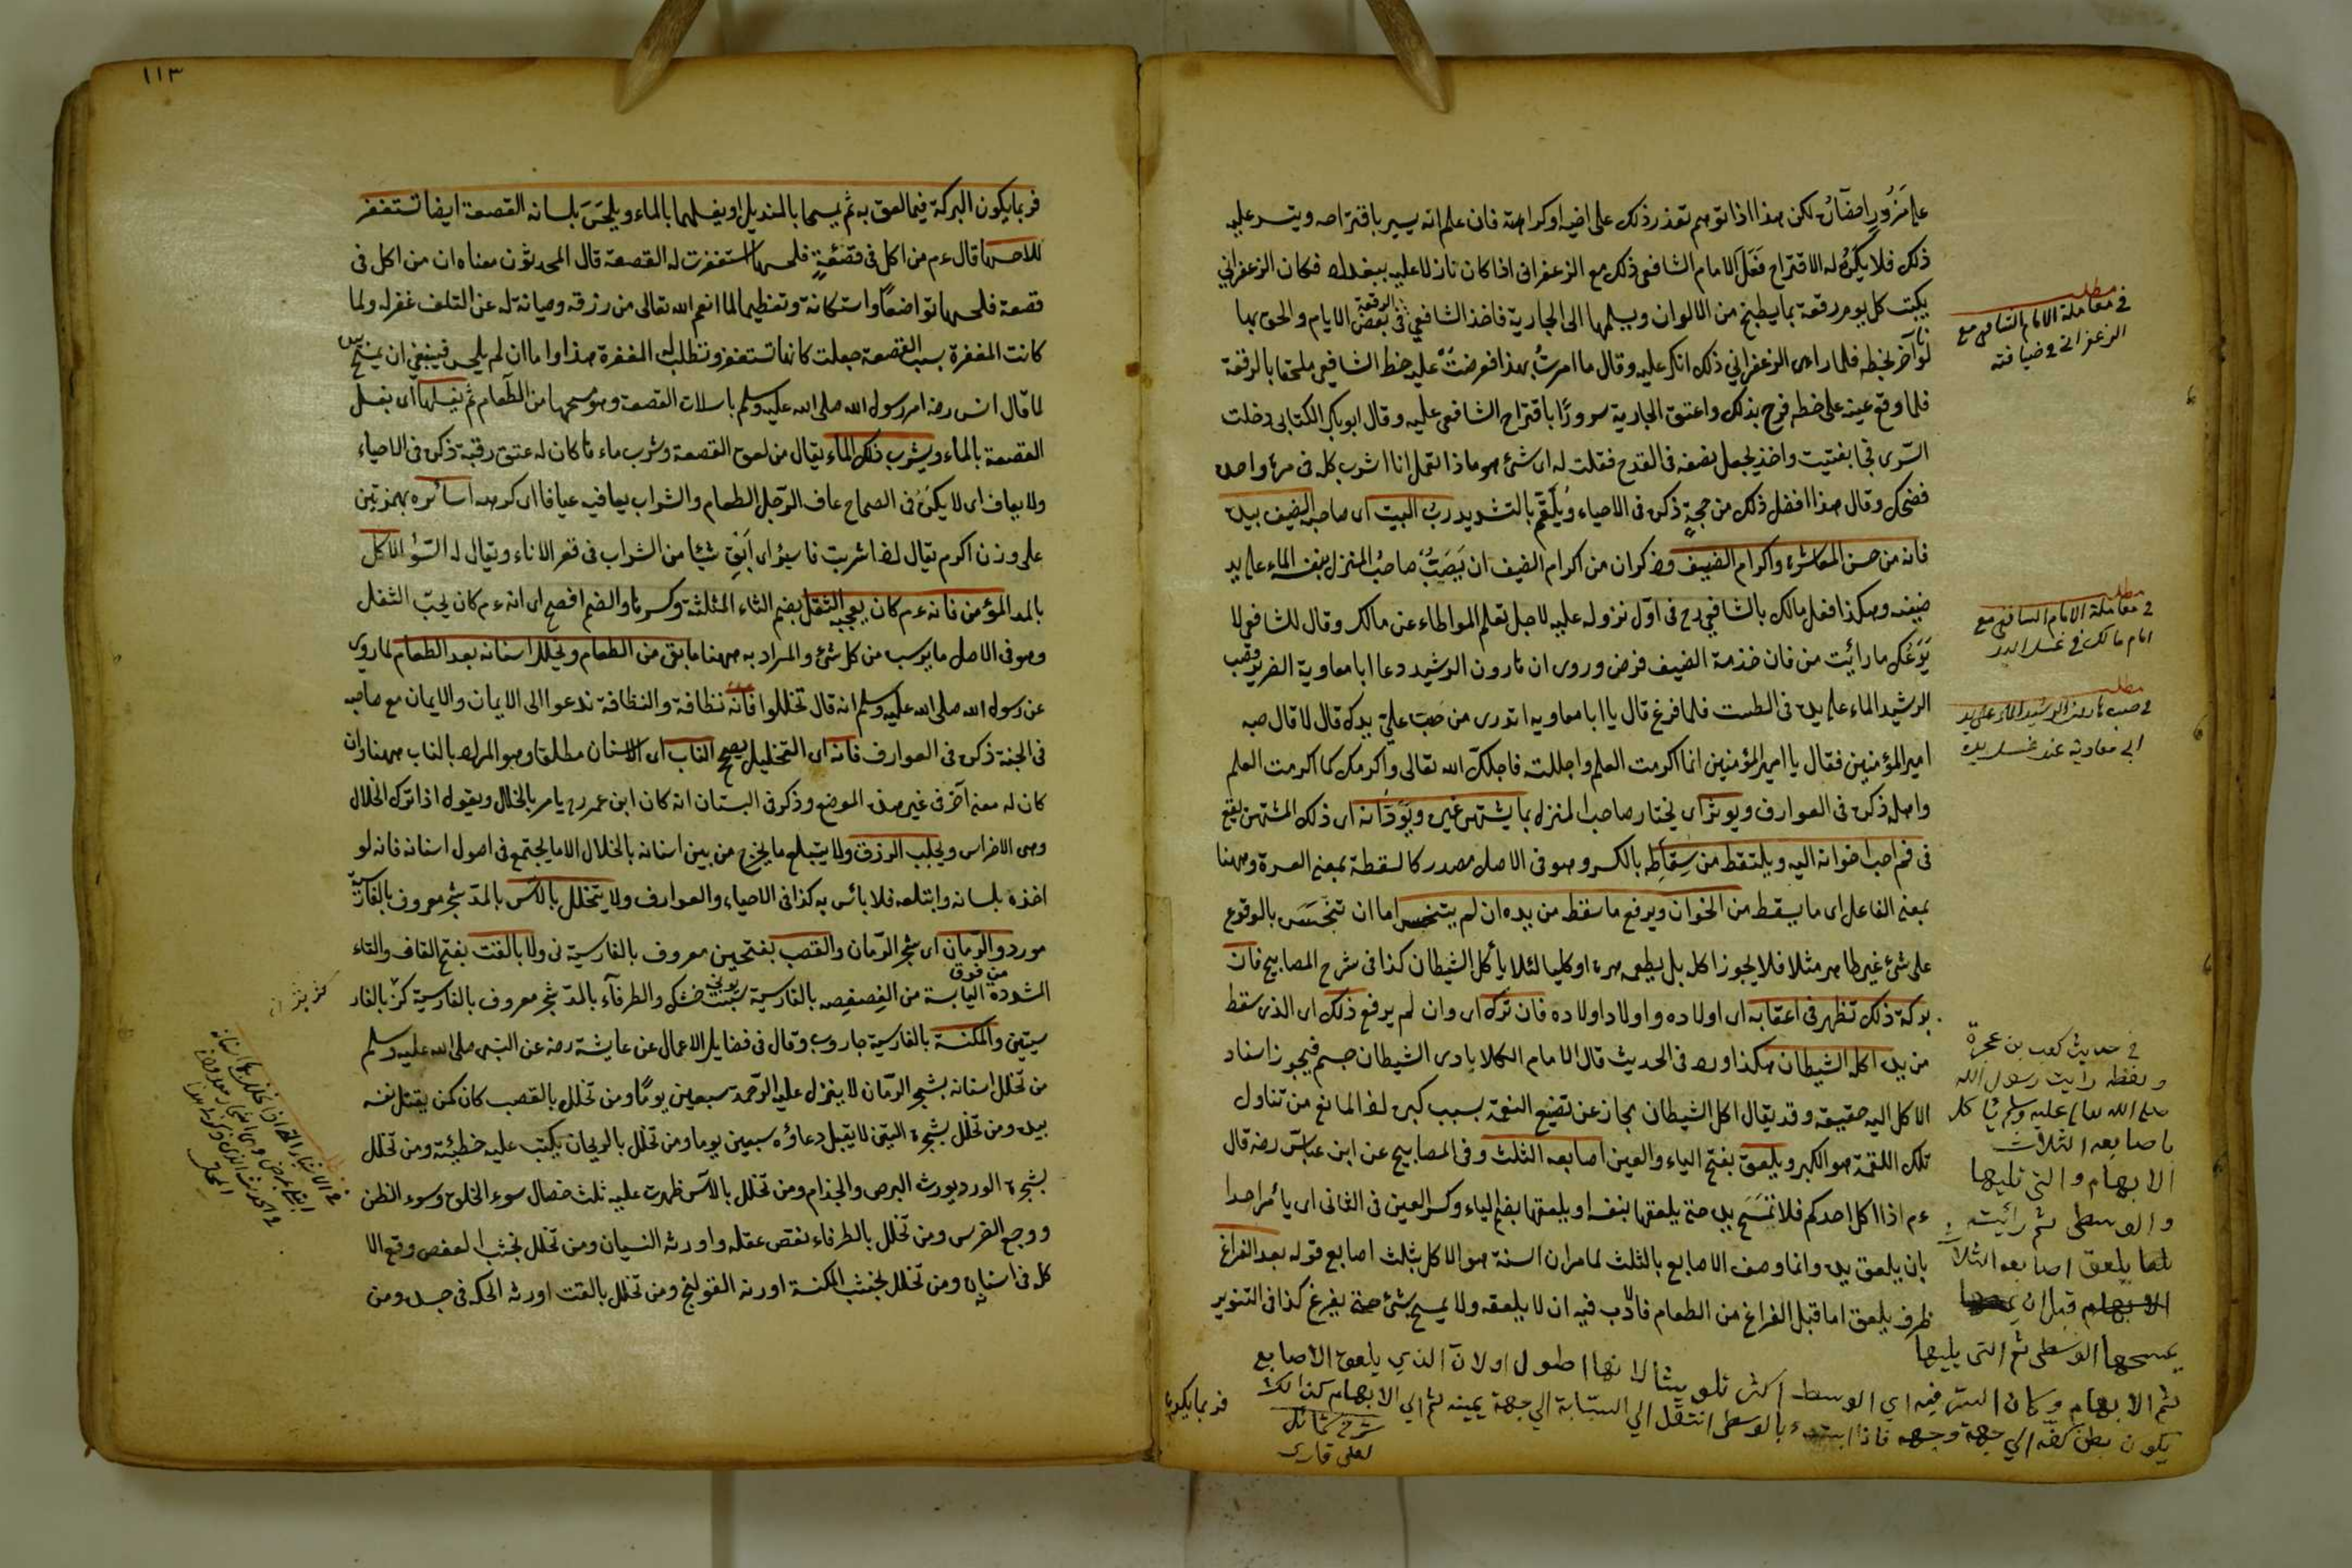 على مزور احضاره لكن هذا اذا توهم تعذر ذلك على اخيه او كراهته فان علم انه يسير باقتراحه ويتسر عليه
ذلك فلا يكره له الاقتراح فعل الامام الشافعي ذلك مع الزعفراني اذا كان نازلا عليه ببغداد فكان الزعفراني
يكتب كل يوم رقعة بما يطبخ من الالوان ويسلمها الى الجارية فاخذ الشافعي الرقعة في بعض الايام والحق بها
لونا آخر بخطه فلما راى الزعفراني ذلك انكر عليه وقال ما امرت بهذا فعرضت عليه خط الشافعي ملحقا بالرقعة
فلما وقع عينه على خطه فرح بذلك واعتق الجارية سرورًا باقتراح الشافعي عليه وقال ابو بكر الكتاني دخلت
السرى فجاء بفتيت واخذ يجعل نصفه في القدح فقلت له اى شئ هو ماذا تعمل انا اشرب كله في مرة واحدة
فضحك وقال هذا افضل ذلك من حجة ذكره في الاحياء ويلقم بالتشديد رب البيت اى صاحبه الضيف بيده
فانه من حسن المعاشرة واكرام الضيف وذكر ان من اكرام الضيف ان يصب صاحب المنزل بنفسه الماء على يد
ضيفه وهكذا فعل مالك بالشافعي رح في اول نزوله عليه لاجل تعلم الموطاء عن مالك وقال للشافعي لا
يروعك ما رائيت من فان خذمة الضيف فرض وروى ان هارون الرشيد دعا ابا معاوية الضرير فصب
الرشيد الماء على يده في الطست فلما فرغ قال يا ابا معاويه اتدرى من صب على يدك قال لا قال صبه
امير المؤمنين فقال يا امير المؤمنين انما اكرمت العلم واجللته فاجلك الله تعالى واكرمك كما اكرمت العلم
واهله ذكره في العوارف ويوثر اى يختار صاحب المنزل بما يشتهى غيره اى ذلك المشتهى يقع
في فم احب اخوانه اليه ويلتقط من سقاطه بالكسر وهو في الاصل مصدر كالسقطة بمعنى العسرة وههنا
بمعنى الفاعل اى ما يسقط من الخوان ويرفع ما سقط من يده ان لم يتنجس اما ان تنجس بالوقوع
على شئ غير طاهر مثلا فلا يجوز اكله بل يطعمه هرة او كلبا لئلا يأكل الشيطان كذا في شرح المصابيح فان
بركة ذلك تظهر في اعقابه اى اولاده واولاد اولاده فان ترك اى وان لم يرفع ذلك اى الذى سقط
من يده اكله الشيطان هكذا ورد في الحديث قال الامام الكلابادى الشيطان جسم فيجوز اسناد
الاكل اليه حقيقة وقد يقال اكل الشيطان مجاز عن تضييع النعمة بسبب كبره لما المانع من تناول
تلك اللقمة هو الكبر ويلعق بفتح الياء والعين اصابعه الثلث وفي المصابيح عن ابن عباس رضه قال
ءم اذا اكل احدكم فلا تمسح يده حتى يلعقها بنفسه او يلعقها بضم الياء وكسر العين في الثانى اى يأمر احدا
بان يلعق يده وانما وصف الاصابع بالثلث لما مر ان السنة هو الاكل بثلث اصابع قوله بعد الفراغ
ظرف يلعق اما قبل الفراغ من الطعام فالادب فيه ان لا يلعقه ولا يمسح بشئ حتى يفرغ كذا في التنوير
فربما يكون
مطلب
في معاملة الامام الشافعي مع
الزعفراني في ضيافته
مطلب
في معاملة الامام الشافعي مع
امام مالك في غسل اليد
مطلب
في صب هارون الرشيد الماء على يد
ابي معاوية عند غسل يده
في حديث كعب بن عجرة
ولفظه رايت رسول الله
صلى الله تعالى عليه وسلم ياكل
باصابعه الثلاث
الابهام والتي تليها
والوسطى ثم رائيته
يلعق اصابعه الثلاث
قبل ان
يمسحها الوسطى ثم التي يليها
ثم الابهام وكان السر فيه اي الوسط اكثر تلويثا لانها اطول اولان الذي يلعق الاصابع
يكون بطن كفه الي جهة وجهه فاذا ابتدء بالوسطى انتقل الي السبابة الي جهة يمينه ثم الي الابهام كذلك
شرح شمائل
لعلي قاري
١١٣
فربما يكون البركة فيما لعق به ثم يمسحها بالمنديل او يغسلها بالماء ويلحس بلسانه القصعة ايضا تستغفر
للاحسها قال ءم من اكل في قصعة فلحسها استغفرت له القصعة قال المحدثون معناه ان من اكل في
قصعة فلحسها تواضعًا واستكانة وتعظيما لما انعم الله تعالى من رزقه وصيانة له عن التلف غفر له ولما
كانت المغفرة بسبب القصعة جعلت كانها تستغفر وتطلب له المغفرة هذا واما ان لم يلحس فينبغي ان يمسح
لما قال انس رضه امر رسول الله صلى الله عليه وسلم باسلات القصعة وهو مسحها من الطعام ثم يغسلها اى يغسل
القصعة بالماء ويشرب ذلك الماء يقال من لعق القصعة وشرب ماءها كان له عتق رقبة ذكره في الاحياء
ولا يعاف اى لا يكره في الصحاح عاف الرجل الطعام والشراب يعافيه عيافا اى كرهه اسائره بهمزتين
على وزن اكرم يقال اذا شربت فاسئر اى ابق شيئا من الشراب في قعر الاناء ويقال له السؤر الاكل
بالمد المؤمن فانه ءم كان يعجبه الثفل بضم الثاء المثلثة وكسرها والضم افصح اى انه ءم كان يحب الثفل
وهو في الاصل ما يرسب من كل شئ والمراد به ههنا ما بقى من الطعام ويخلل اسنانه بعد الطعام لما روى
عن رسول الله صلى الله عليه وسلم انه قال تخللوا فانه نظافة والنظافة تدعوا الى الايمان والايمان مع صاحبه
في الجنة ذكره في العوارف فانه اى التخليل يصح الناب اى الاسنان مطلقا وهو المراد بالناب ههنا وان
كان له معنى آخر في غير هذا الموضع وذكر في البستان انه كان ابن عمر رح يامر بالخلال ويقول اذا ترك الخلال
وهى الاضراس ويجلب الرزق ولا يبتلع ما يخرج من بين اسنانه بالخلال الا ما يجتمع في اصول اسنانه فانه لو
اخذه بلسانه وابتلعه فلا بائس به كذا في الاحياء والعوارف ولا يتخلل بالآس بالمد شجر معروف بالفارسية
مورد والرمان اى شجر الرمان والقصب بفتحتين معروف بالفارسية نى ولا بالقت بفتح القاف والتاء
المشددة من فوق اليابسة من الفصفصه بالفارسية خشك والطرفآء بالمد شجر معروف بالفارسية كز بالفار
والمكنسة بالفارسية جاروب وقال في فضايل الاعمال عن عايشة رضه عن النبى صلى الله عليه وسلم
من تخلل اسنانه بشجر الرمان لا ينزل عليه الرحمة سبعين يومًا ومن تخلل بالقصب كان كمن يقتل نفسه
بيده ومن تخلل بشجرة التين لا يقبل دعاؤه سبعين يوما ومن تخلل بالريحان يكتب عليه خطيئة ومن تخلل
بشجرة الورد يورث البرص والجذام ومن تخلل بالآس ظهرت عليه ثلث خصال سوء الخلق وسوء الظن
ووجع الضرس ومن تخلل بالطرفاء نقص عقله واورثه النسيان ومن تخلل بخشب العفص وقع الا
كله في اسنانه ومن تخلل بخشب المكنسة اورثه القولنج ومن تخلل بالقت اورثه الحكه في جسده ومن